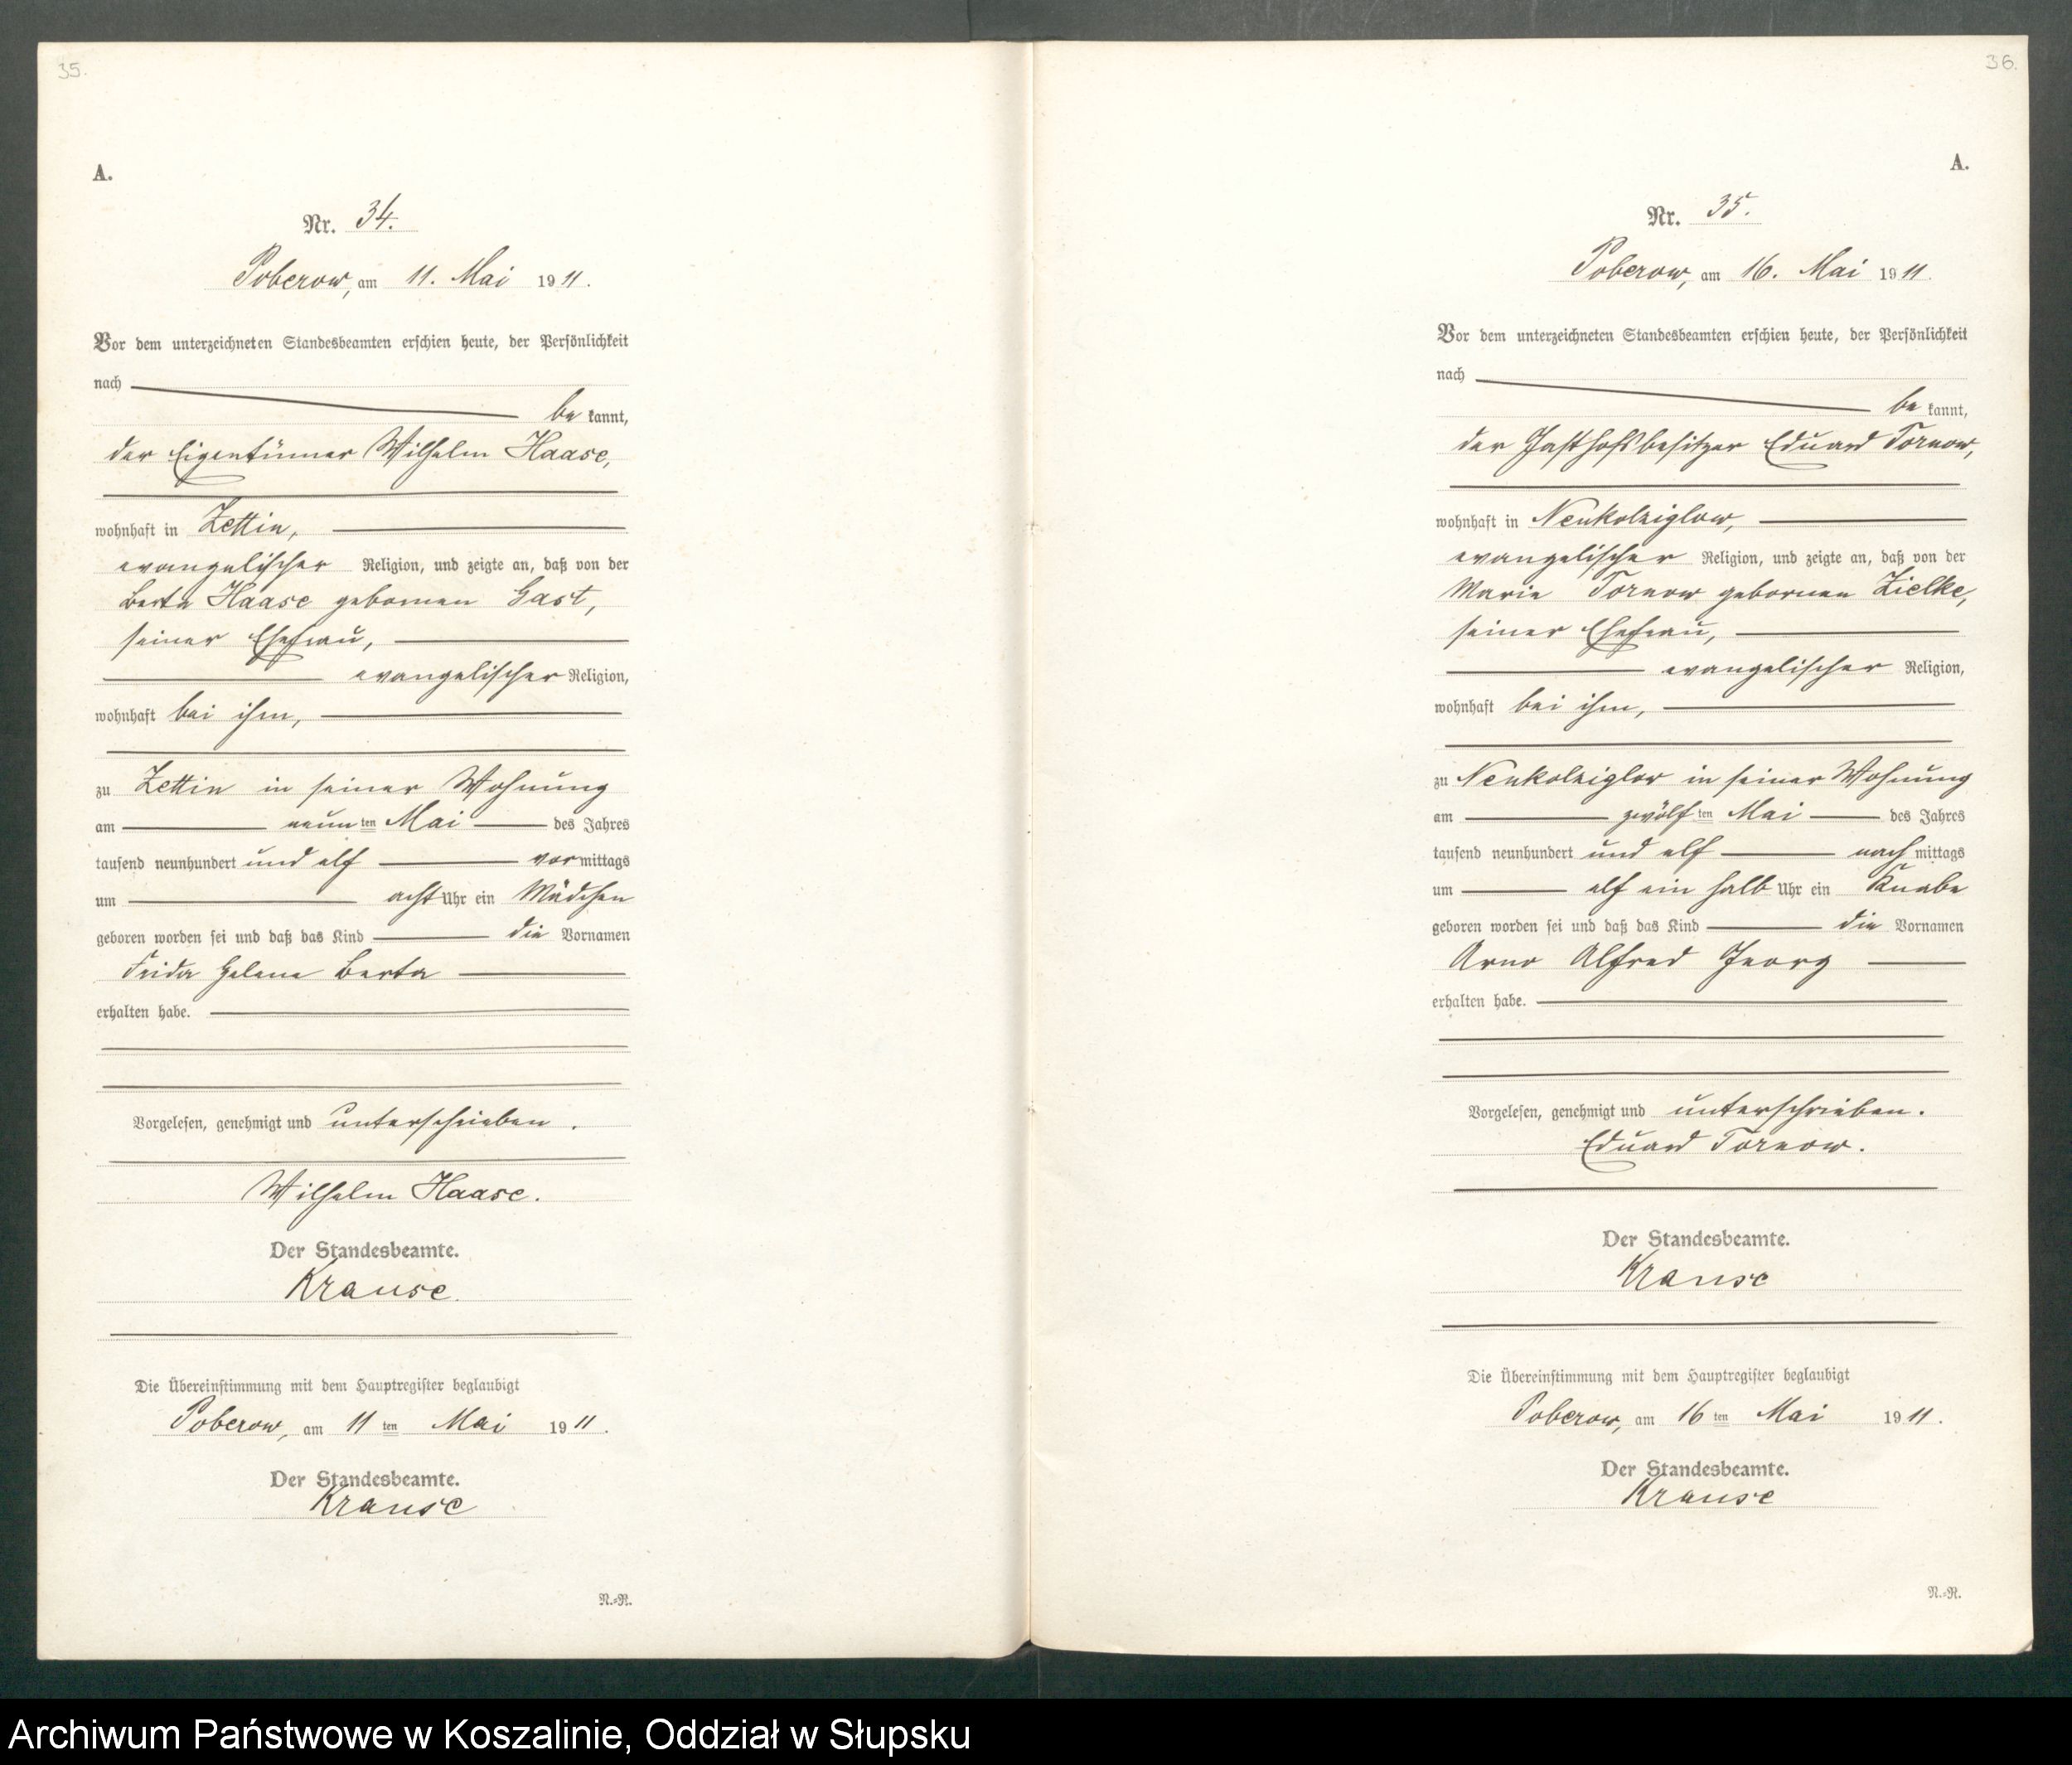 35.
A.
Nr. 34.
Poberow, am 11. Mai 1911.
Vor dem unterzeichneten Standesbeamten erschien heute, der Persönlichkeit
nach
bekannt,
der Eigentümer Wilhelm Haase,
wohnhaft in Zettin,
evangelischer Religion, und zeigte an, daß von der
Berta Haase gebornen Gast,
seiner Ehefrau,
evangelischer Religion,
wohnhaft bei ihm,
zu Zettin in seiner Wohnung
am neunten Mai des Jahres
tausend neunhundert und elf vormittags
um acht Uhr ein Mädchen
geboren worden sei und daß das Kind die Vornamen
Frida Helene Berta
erhalten habe.
Vorgelesen, genehmigt und unterschrieben.
Wilhelm Haase.
Der Standesbeamte.
Krause.
Die Übereinstimmung mit dem Hauptregister beglaubigt
Poberow, am 11ten Mai 1911.
Der Standesbeamte.
Krause
N.-R.
36.
A.
Nr. 35.
Poberow, am 16. Mai 1911.
Vor dem unterzeichneten Standesbeamten erschien heute, der Persönlichkeit
nach
bekannt,
der Gasthofsbesitzer Eduard Tornow,
wohnhaft in Neukolziglow,
evangelischer Religion, und zeigte an, daß von der
Marie Tornow gebornen Zielke,
seiner Ehefrau,
evangelischer Religion,
wohnhaft bei ihm,
zu Neukolziglow in seiner Wohnung
am zwölften Mai des Jahres
tausend neunhundert und elf nachmittags
um elf ein halb Uhr ein Knabe
geboren worden sei und daß das Kind die Vornamen
Arno Alfred Georg
erhalten habe.
Vorgelesen, genehmigt und unterschrieben.
Eduard Tornow.
Der Standesbeamte.
Krause
Die Übereinstimmung mit dem Hauptregister beglaubigt
Poberow, am 16ten Mai 1911.
Der Standesbeamte.
Krause
N.-R.
Archiwum Państwowe w Koszalinie, Oddział w Słupsku